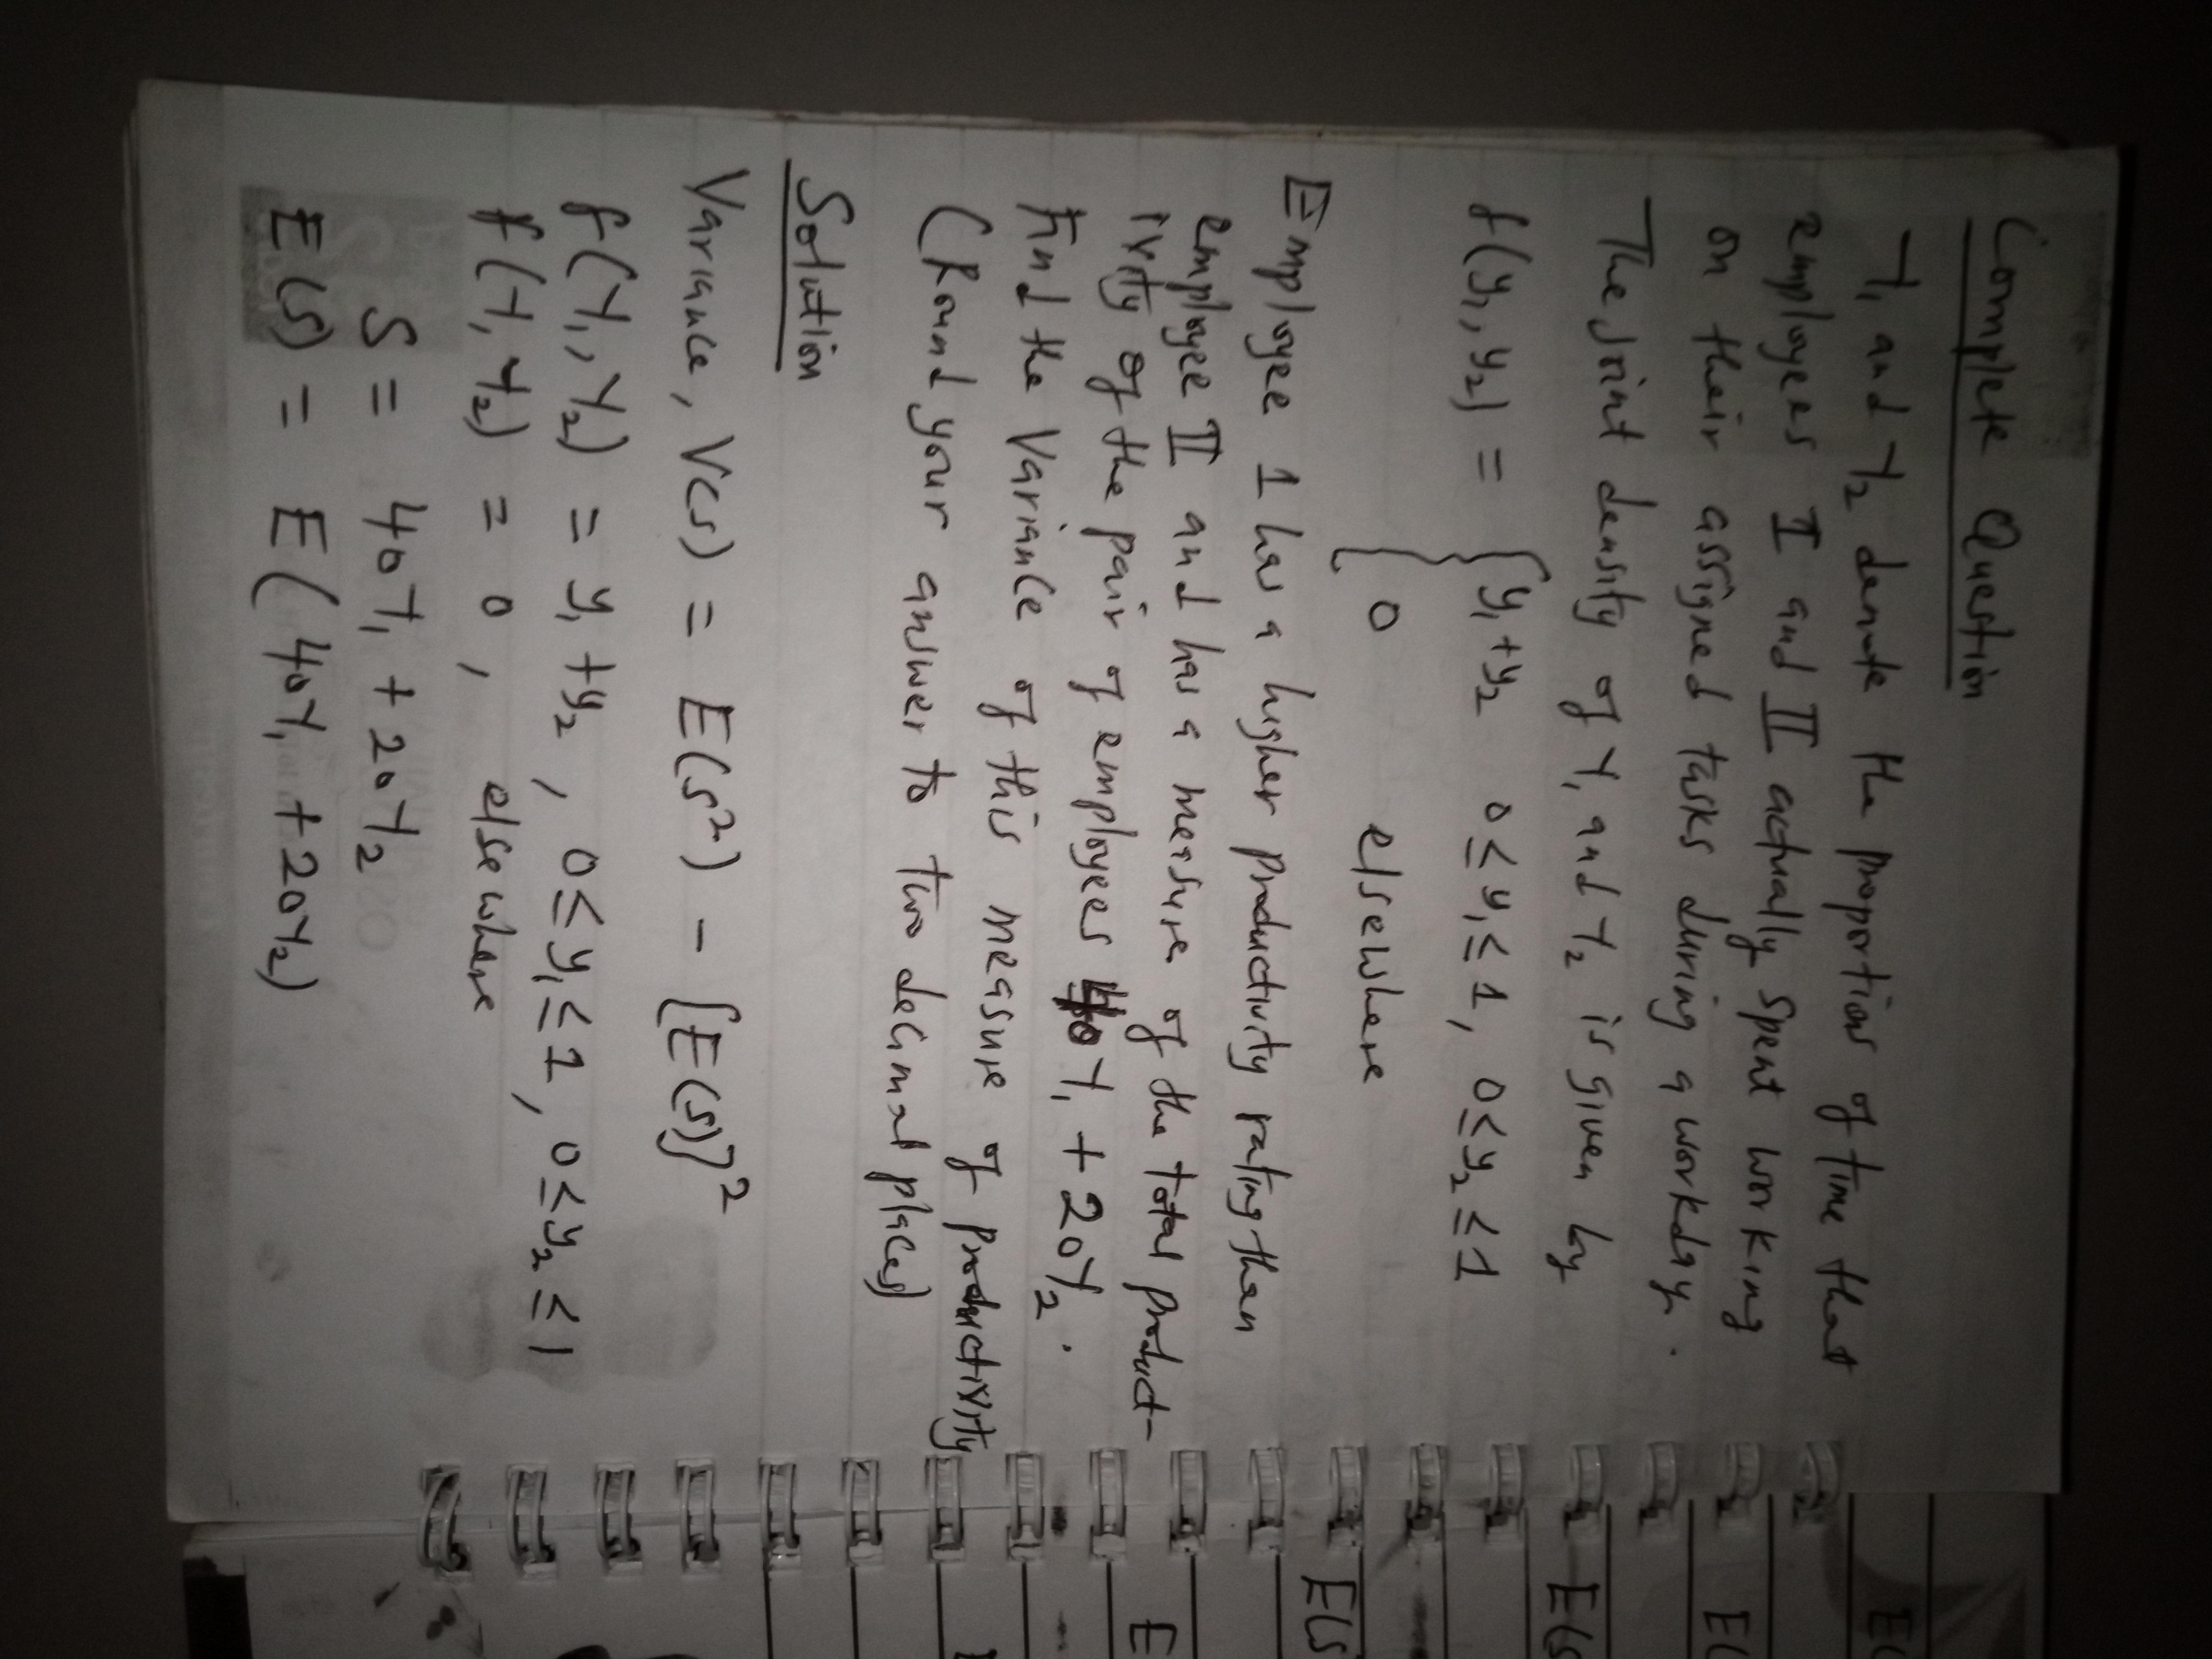 Complete Question
Y₁ and Y₂ denote the proportion of time that
employees I and II actually spent working
on their assigned tasks during a workday.
The joint density of Y₁ and Y₂ is given by
f(y₁, y₂) = { y₁+y₂ 0≤y₁≤1, 0≤y₂≤1
{ 0 elsewhere
Employee 1 has a higher productivity rating than
employee II and has a measure of the total product-
ivity of the pair of employees 40Y₁ + 20Y₂.
Find the Variance of this measure of productivity
(Round your answer to two decimal places)
Solution
Variance, V(s) = E(s²) - [E(s)]²
f(Y₁, Y₂) = y₁+y₂, 0≤y₁≤1, 0≤y₂≤1
f(Y₁, Y₂) = 0, elsewhere
S = 40Y₁ + 20Y₂
E(s) = E(40Y₁ + 20Y₂)
E(
E(
E(s
E(s
E